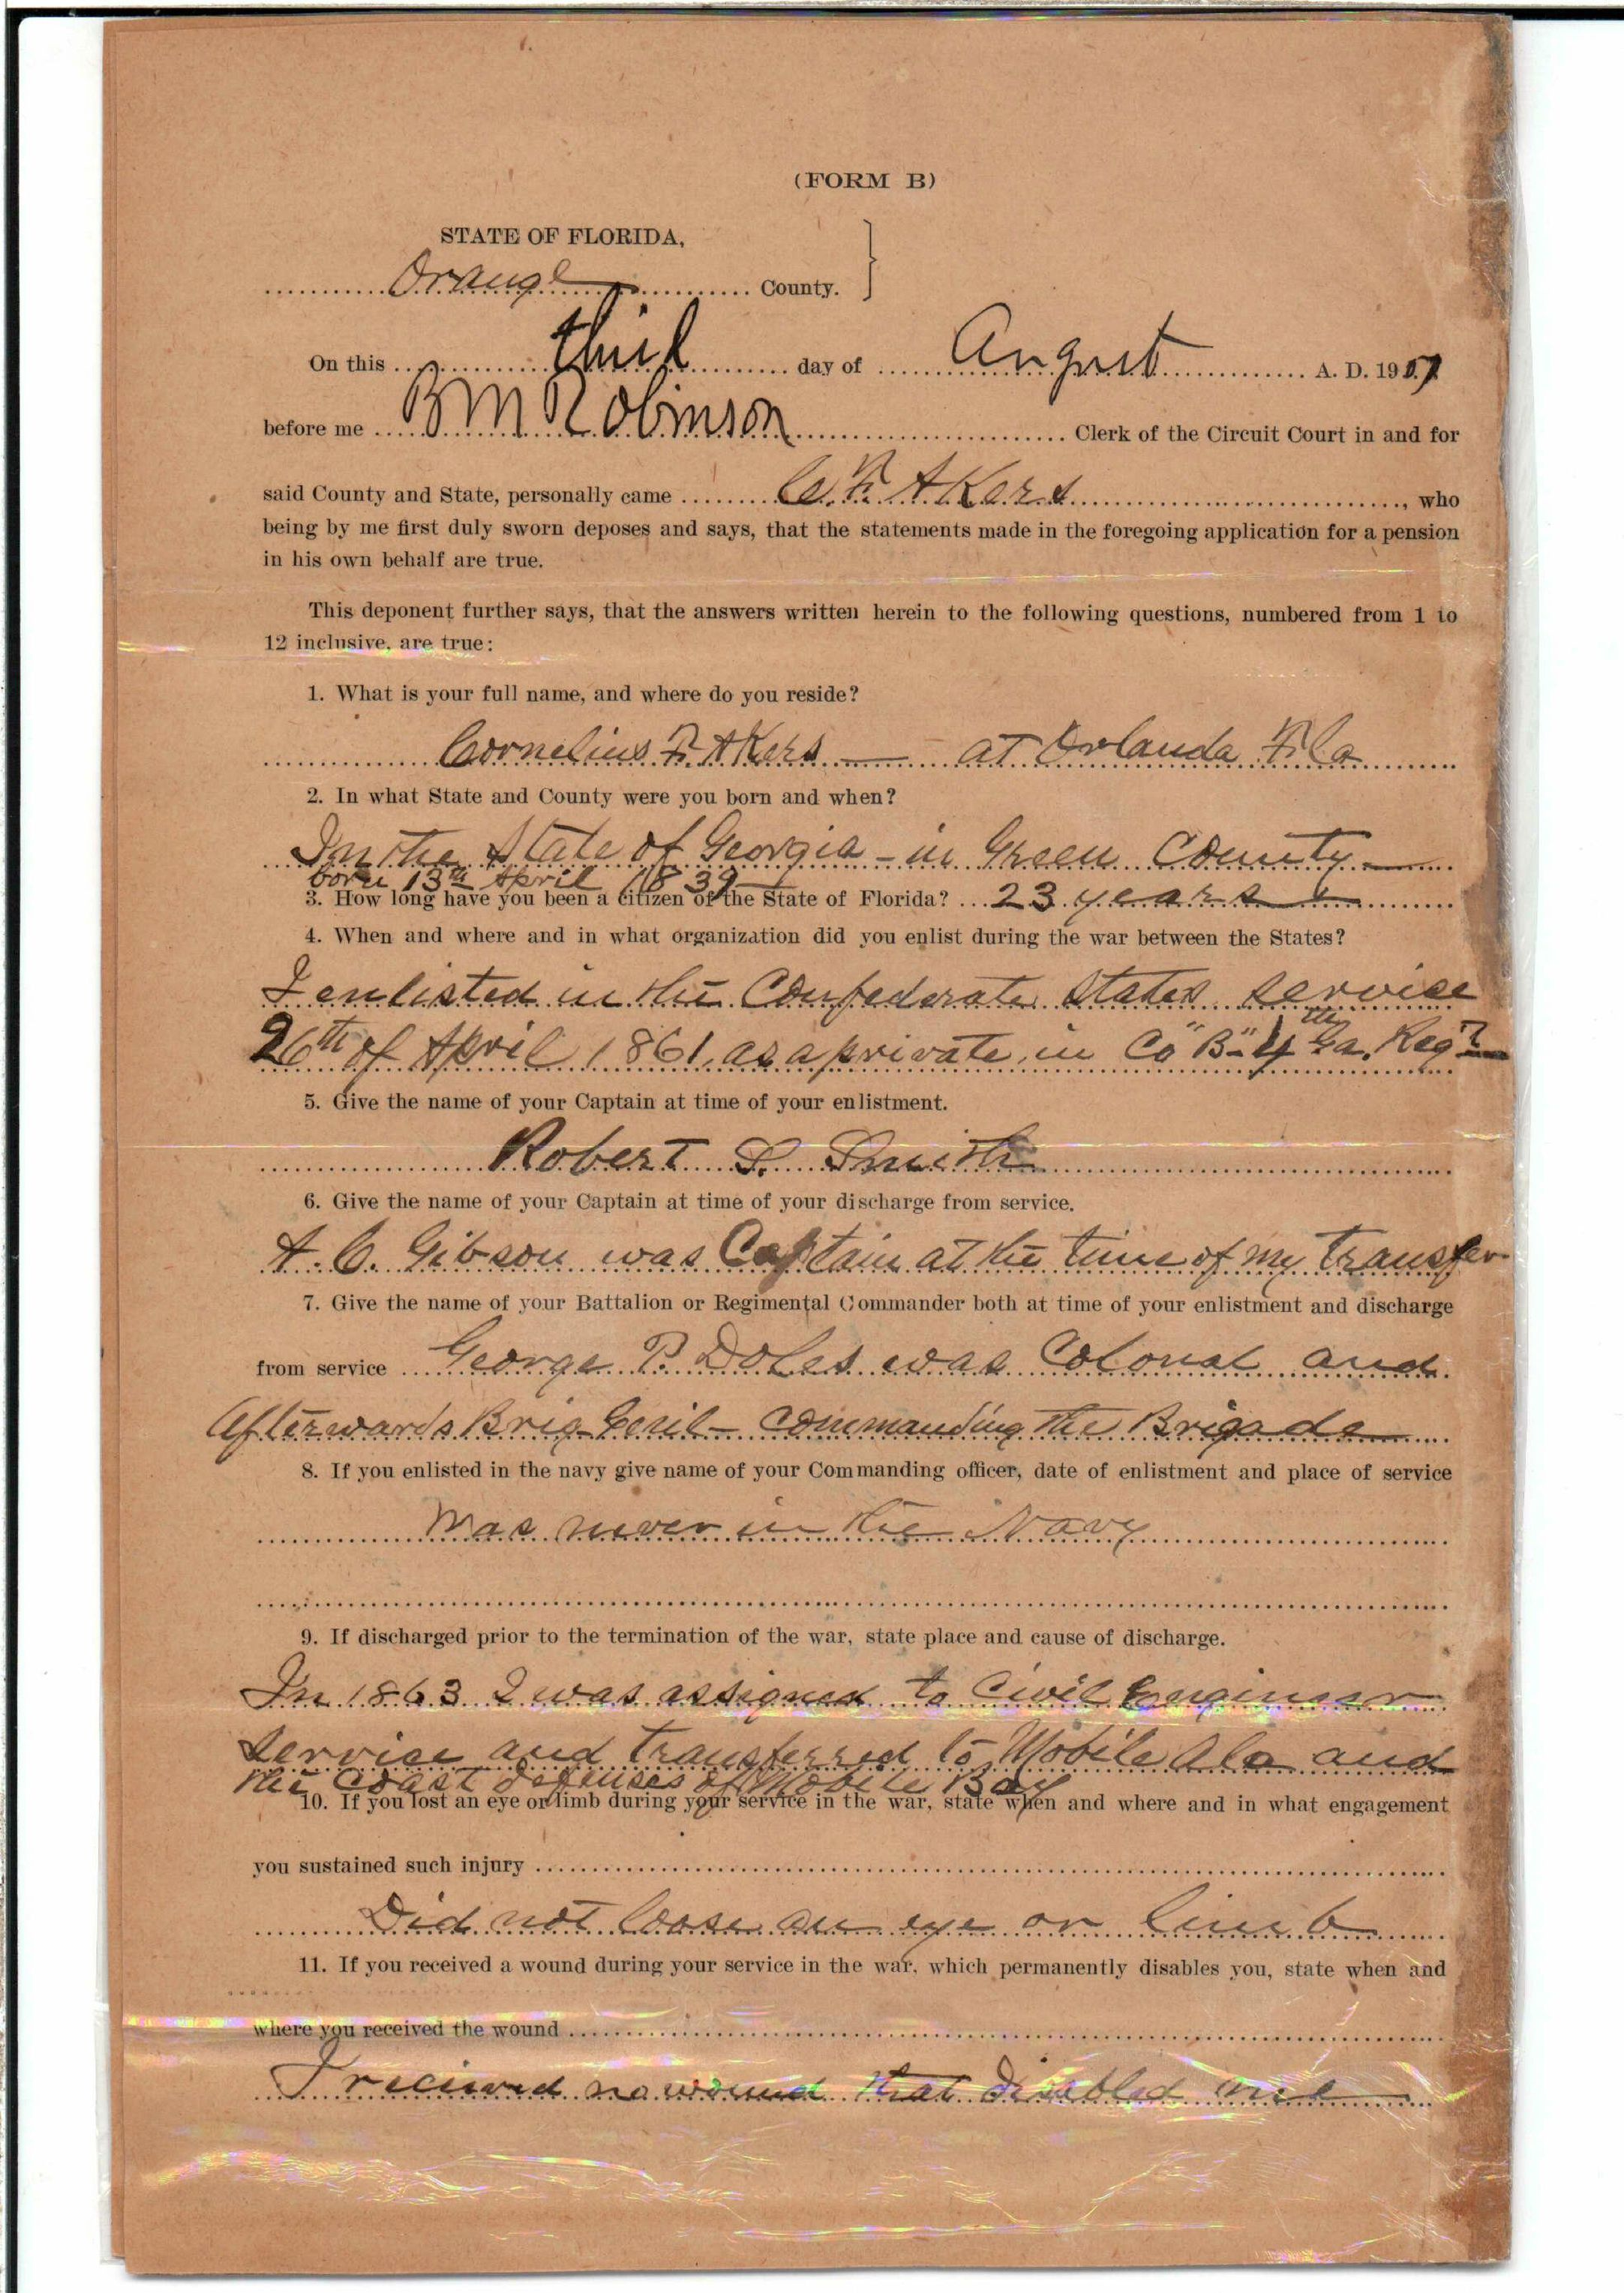 (FORM B)
STATE OF FLORIDA,
Orange County.
On this third day of August A. D. 1907
before me B M Robinson Clerk of the Circuit Court in and for
said County and State, personally came C. F. Akers, who
being by me first duly sworn deposes and says, that the statements made in the foregoing application for a pension
in his own behalf are true.
This deponent further says, that the answers written herein to the following questions, numbered from 1 to
12 inclusive, are true:
1. What is your full name, and where do you reside?
Cornelius F. Akers — at Orlando Fla
2. In what State and County were you born and when?
In the State of Georgia - in Green County —
born 13th April 1839
3. How long have you been a citizen of the State of Florida? 23 years
4. When and where and in what organization did you enlist during the war between the States?
I enlisted in the Confederate States service
26th of April 1861, as a private in Co "B" 4th Ga. Regt
5. Give the name of your Captain at time of your enlistment.
Robert S. Smith
6. Give the name of your Captain at time of your discharge from service.
A. C. Gibson was Captain at the time of my transfer
7. Give the name of your Battalion or Regimental Commander both at time of your enlistment and discharge
from service George P. Doles was Colonel and
afterwards Brig. Genl - commanding the Brigade
8. If you enlisted in the navy give name of your Commanding officer, date of enlistment and place of service
Was never in the Navy
9. If discharged prior to the termination of the war, state place and cause of discharge.
In 1863 I was assigned to Civil Engineer
service and transferred to Mobile Ala and
the Coast defenses of Mobile Bay
10. If you lost an eye or limb during your service in the war, state when and where and in what engagement
you sustained such injury
Did not loose an eye or limb
11. If you received a wound during your service in the war, which permanently disables you, state when and
where you received the wound
I received no wound that disabled me